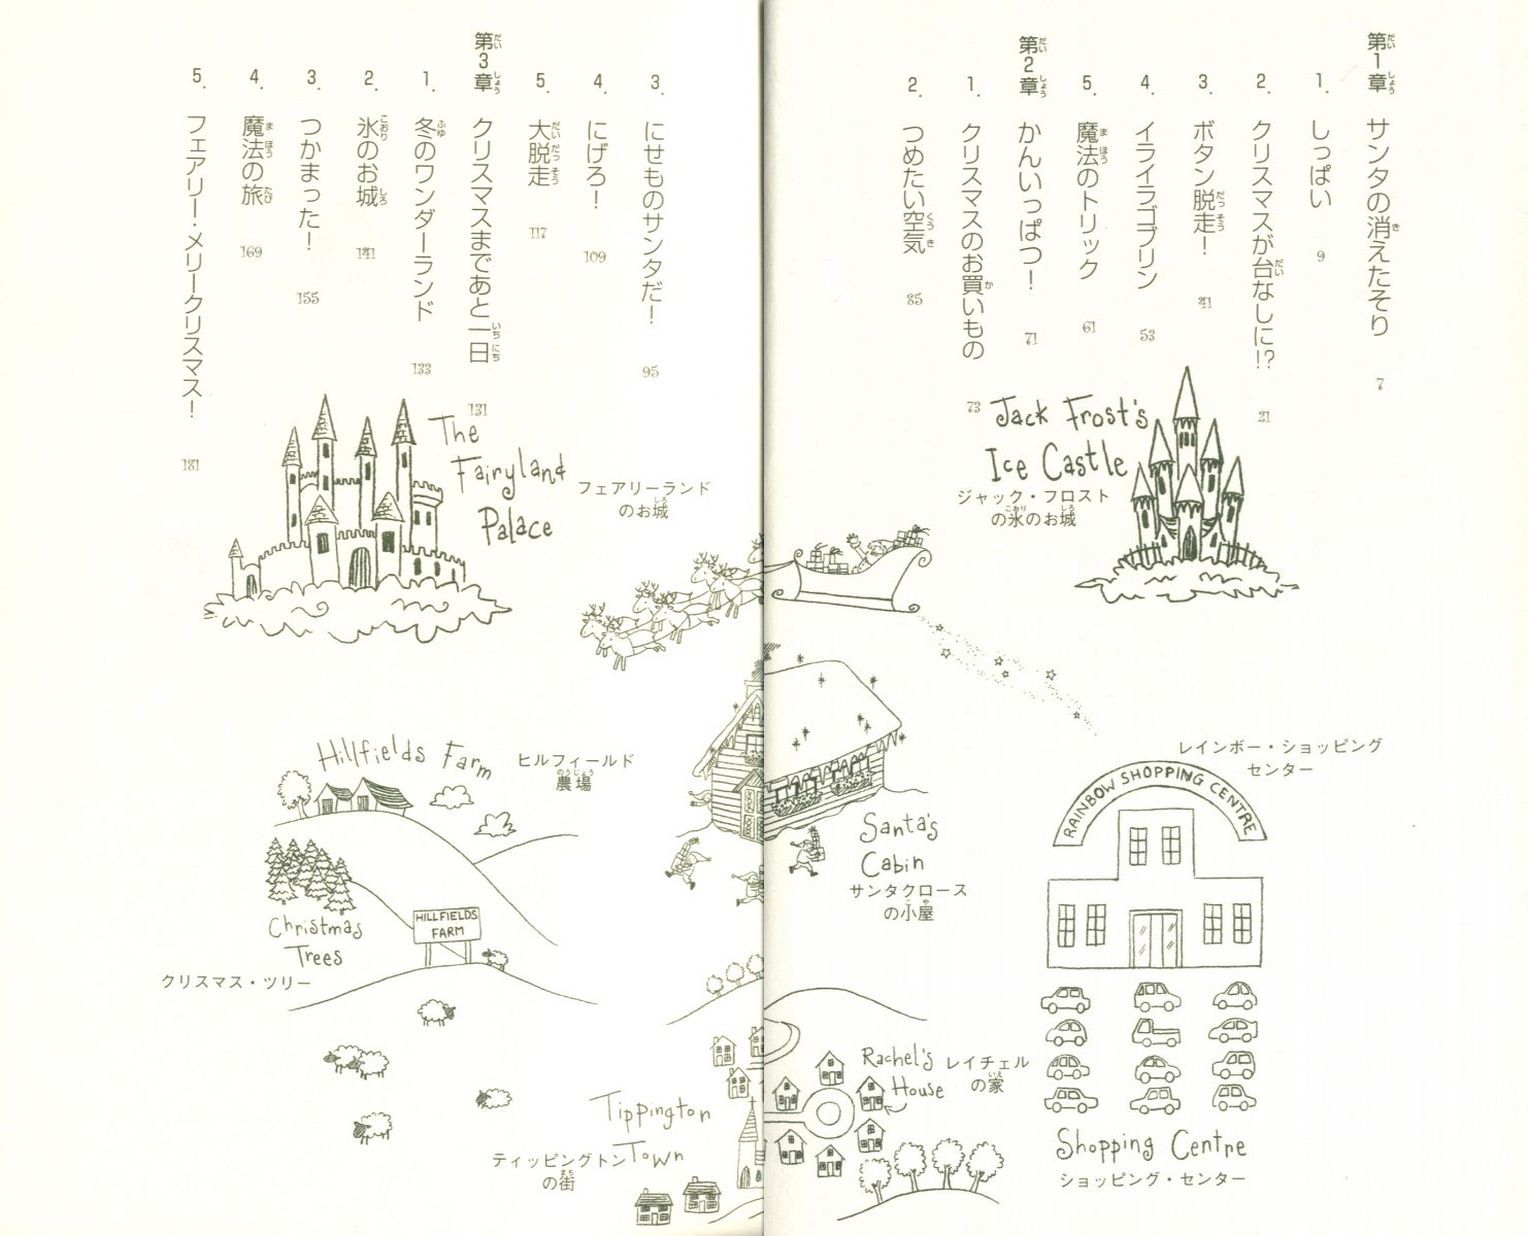 第1章 サンタの消えたそり 7
1. しっぱい 9
2. クリスマスが台なしに!? 21
3. ボタン脱走! 41
4. イライラゴブリン 53
5. 魔法のトリック 61
第2章 かんいっぱつ! 71
1. クリスマスのお買いもの 73
2. つめたい空気 85
3. にせものサンタだ! 95
4. にげろ! 109
5. 大脱走 117
第3章 クリスマスまであと一日 131
1. 冬のワンダーランド 133
2. 氷のお城 141
3. つかまった! 155
4. 魔法の旅 169
5. フェアリー・メリークリスマス! 181
Jack Frost's
Ice Castle
ジャック・フロスト
の氷のお城
The
Fairyland
Palace
フェアリーランド
のお城
レインボー・ショッピング
センター
RAINBOW SHOPPING CENTRE
Santa's
Cabin
サンタクロース
の小屋
Hillfields Farm
ヒルフィールド
農場
HILLFIELDS
FARM
Christmas
Trees
クリスマス・ツリー
Rachel's
House
レイチェル
の家
Shopping Centre
ショッピング・センター
Tippington
Town
ティッピングトン
の街